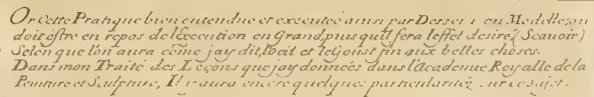 Or Cette Pratique bien entendue et executée ainsi par Dessei ou Modelle, on
doit estre en repos de l'execution en Grand, puis qu'il fera l'effet desiré, (Scauoir)
Selon que l'on aura côme jay dit, et le Goust fin aux belles choses.
Dans mon Traité des Leçons que jay données dans l'Academie Royalle de la
Peinture et Sculpture, Il y aura encore quelques particularitéz sur ce sujet.